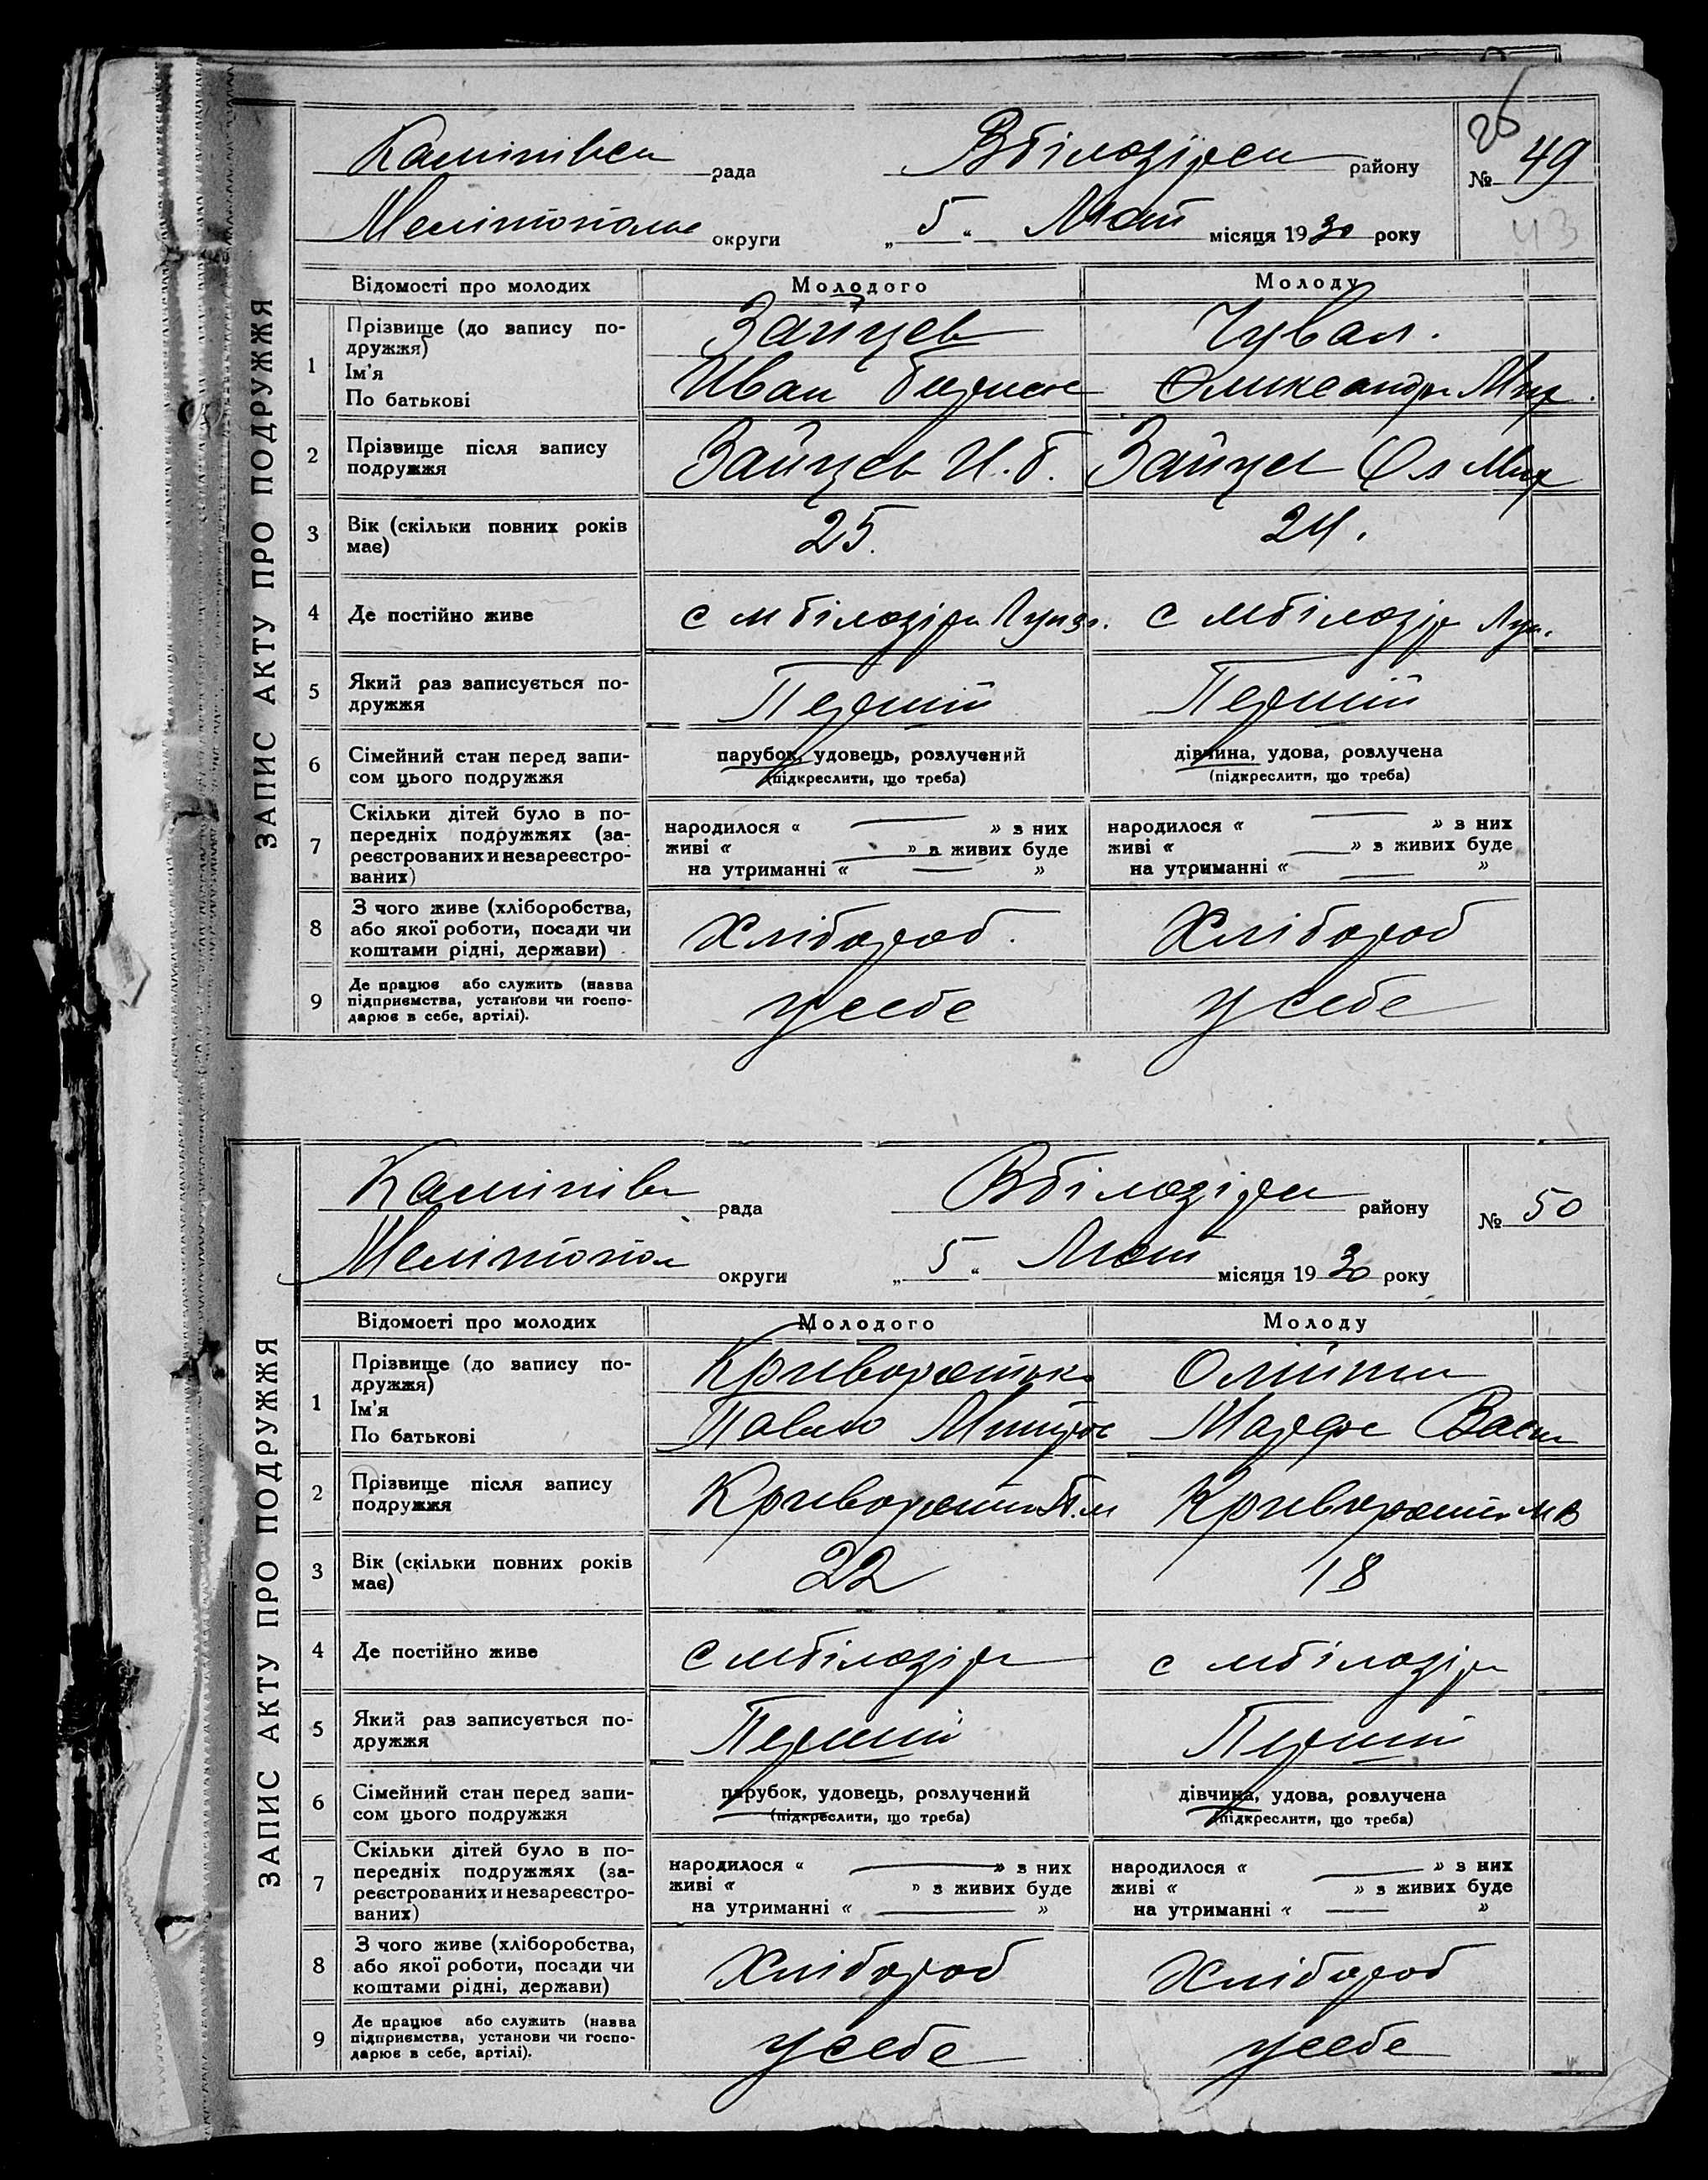 26
рада Вбілозірсп району № 49
Мелітополе округи „5“ Лют місяця 1930 року 43
ЗАПИС АКТУ ПРО ПОДРУЖЖЯ
Відомості про молодих Молодого Молоду
1 Прізвище (до запису подружжя) Зайцев Чувал.
Ім'я
По батькові Иван Олександр Мих.
2 Прізвище після запису подружжя Зайцев И. б. Зайцев Ол Мих
3 Вік (скільки повних років має) 25. 24.
4 Де постійно живе с мбілозірк с мбілозір
5 Який раз записується подружжя Перший Перший
6 Сімейний стан перед записом цього подружжя парубок, удовець, розлучений дівчина, удова, розлучена
(підкреслити, що треба) (підкреслити, що треба)
7 Скільки дітей було в попередніх подружжях (зареєстрованих и незареєстрованих) народилося « — » з них народилося « — » з них
живі « — » з живих буде живі « — » з живих буде
на утриманні « — » на утриманні « — »
8 З чого живе (хліборобства, або якої роботи, посади чи коштами рідні, держави) Хлібороб. Хлібороб
9 Де працює або служить (назва підприємства, установи чи господарює в себе, артілі). у себе у себе
рада Вбілозірсп району № 50
Мелітопол округи „5“ Лют місяця 1930 року
ЗАПИС АКТУ ПРО ПОДРУЖЖЯ
Відомості про молодих Молодого Молоду
1 Прізвище (до запису подружжя)
Ім'я
По батькові Павло Васи
2 Прізвище після запису подружжя
3 Вік (скільки повних років має) 22 18
4 Де постійно живе с мбілозір с мбілозір
5 Який раз записується подружжя Перший Перший
6 Сімейний стан перед записом цього подружжя парубок, удовець, розлучений дівчина, удова, розлучена
(підкреслити, що треба) (підкреслити, що треба)
7 Скільки дітей було в попередніх подружжях (зареєстрованих и незареєстрованих) народилося « — » з них народилося « — » з них
живі « » з живих буде живі « » з живих буде
на утриманні « — » на утриманні « — »
8 З чого живе (хліборобства, або якої роботи, посади чи коштами рідні, держави) Хлібороб Хлібороб
9 Де працює або служить (назва підприємства, установи чи господарює в себе, артілі). у себе у себе